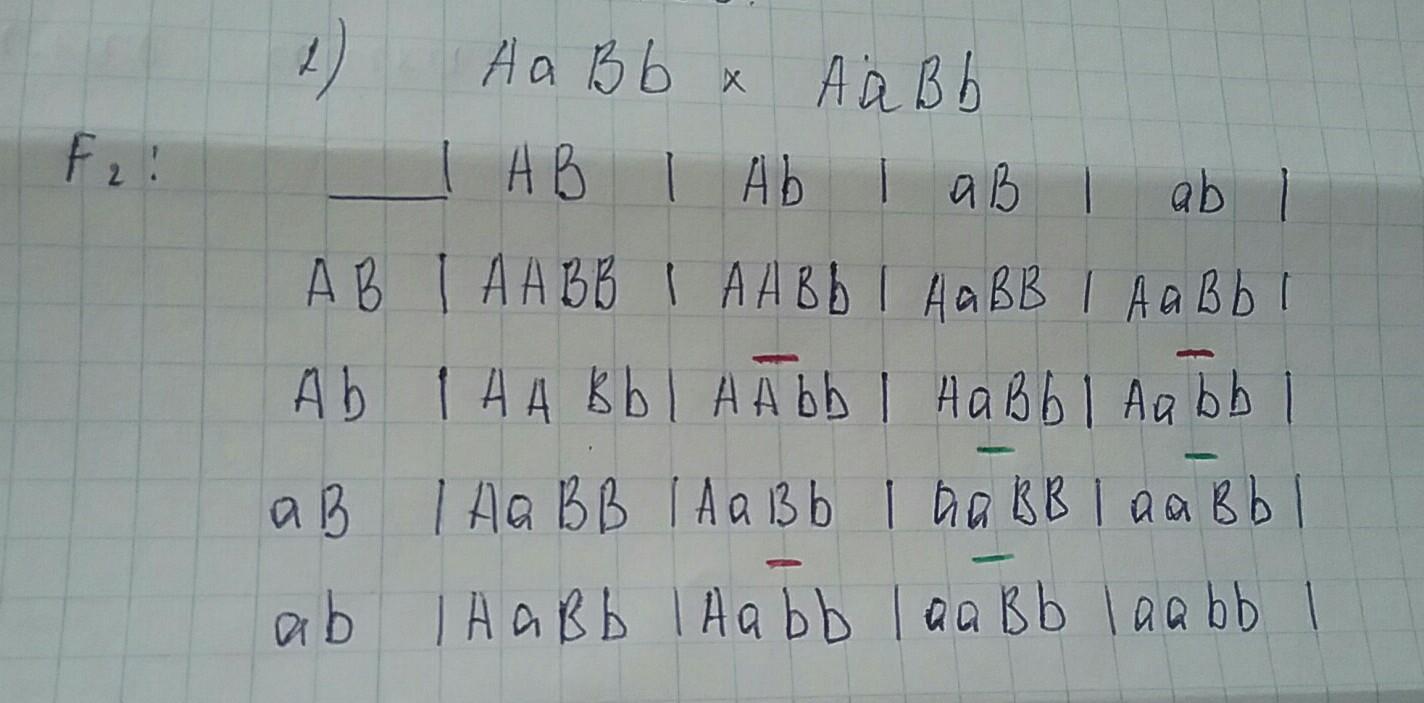 2) AaBb x AaBb
F2: ___| AB | Ab | aB | ab |
AB | AABB | AABb | AaBB | AaBb |
Ab | AABb | AAbb | AaBb | Aabb |
aB | AaBB | AaBb | aaBB | aaBb |
ab | AaBb | Aabb | aaBb | aabb |